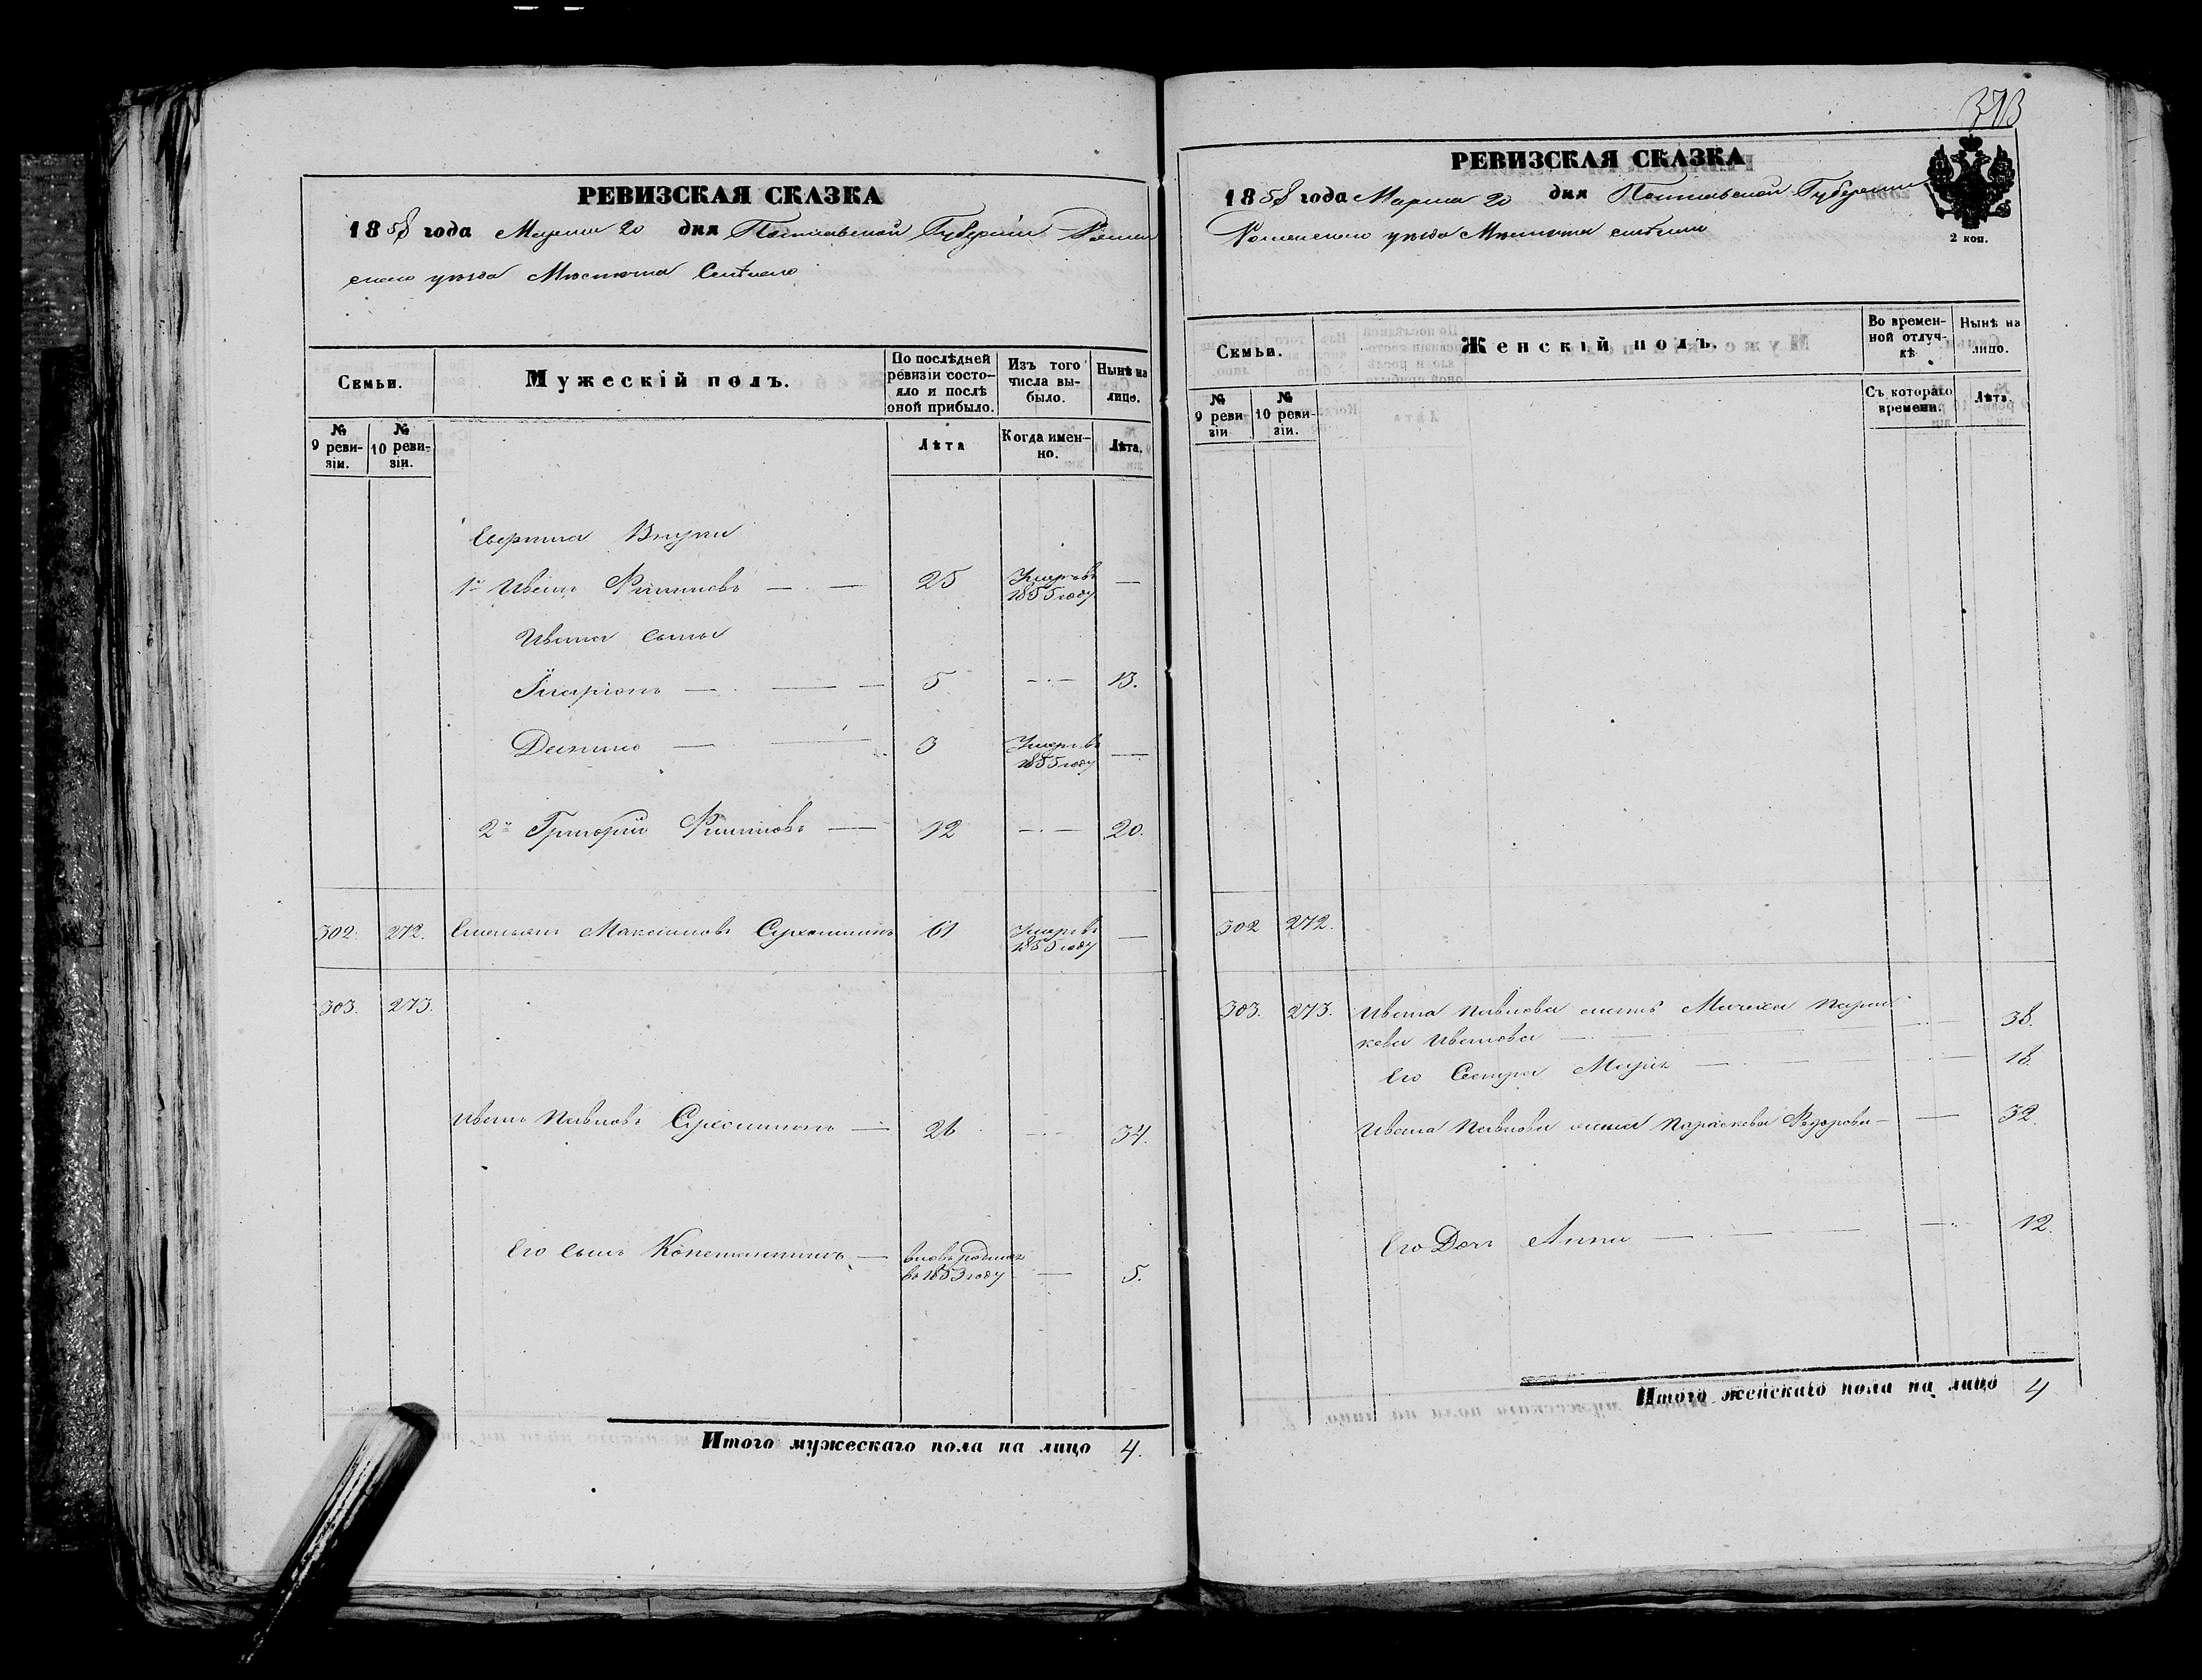 РЕВИЗСКАЯ СКАЗКА
1858 года Марта 20 дня Полтавской Губернии Ромен
скаго уѣзда Мѣстечка Смѣлаго
Семьи.
Мужескій полъ.
По послѣдней ревизіи состояло и послѣ оной прибыло.
Изъ того числа выбыло.
Нынѣ на лицо.
№ 9 ревизіи.
№ 10 ревизіи.
Лѣта
Когда именно.
Лѣта.
Внуки
1й Иванъ Филиповъ — 25 Умеръ въ 1855 году —
Ивана сыны
Иларіонъ — 5 — 13.
Данило — 3 Умеръ въ 1855 году —
2й Григорій Филиповъ — 12 — 20.
302. 272. Емельянъ Максимовъ 61 Умеръ въ 1855 году —
303. 273.
Иванъ Павловъ — 26 — 34.
Его сынъ Константинъ — вновь рожден въ 1853 году — 5.
Итого мужескаго пола на лицо 4.
373
РЕВИЗСКАЯ СКАЗКА
1858 года Марта 20 дня Полтавской Губерніи
Роменскаго уѣзда Мѣстечка Смѣлаго
2 коп.
Семьи.
Женскій полъ.
Во временной отлучкѣ.
Нынѣ на лицо.
№ 9 ревизіи
№ 10 ревизіи.
Съ котораго времени.
Лѣта.
302 272.
303. 273. Ивана Павлова Мачеха Парас
кева Иванова — 38.
Его Сестра Марія — 18.
Ивана Павлова жена Параскева Федорова — 32.
Его Дочь Анна — 12
Итого женскаго пола на лицо 4